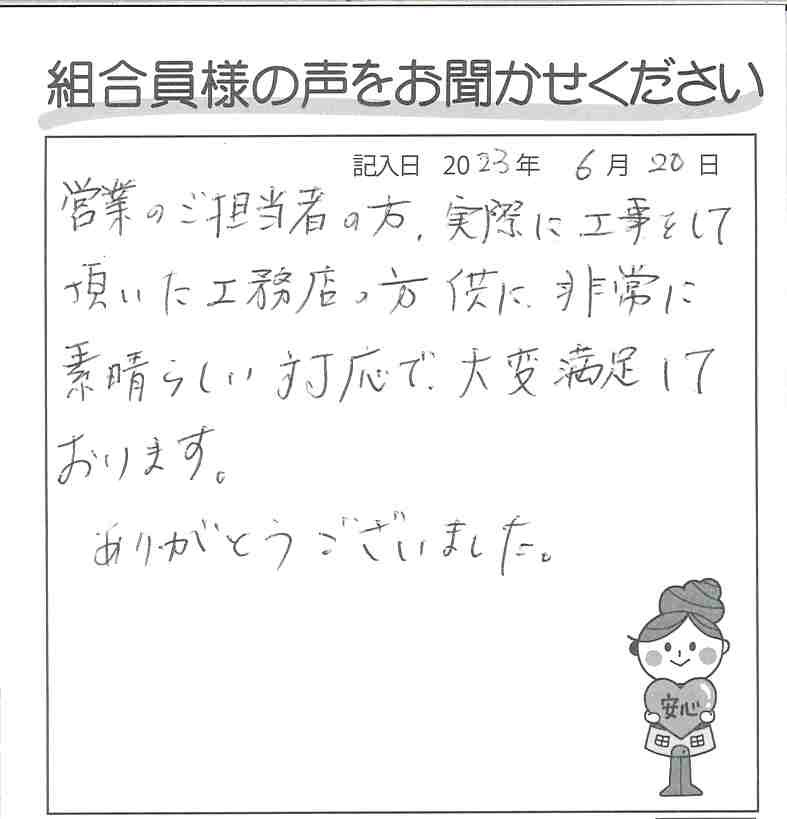 組合員様の声をお聞かせください
記入日 2023年 6月 20日
営業のご担当者の方、実際に工事をして
頂いた工務店の方供に、非常に
素晴らしい対応で、大変満足して
おります。
ありがとうございました。
安心